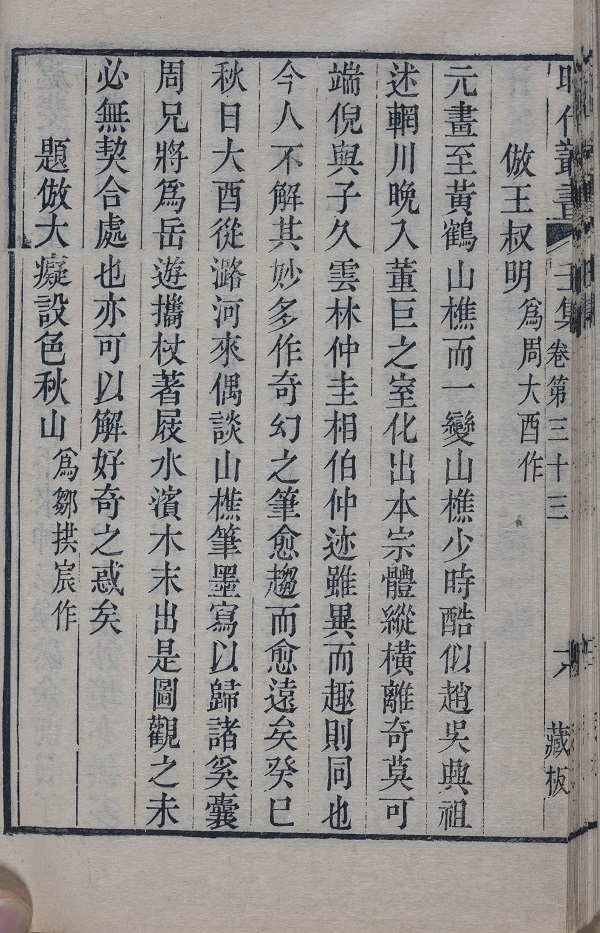 昭代叢書 壬集 卷第三十三 藏板
倣王叔明 爲周大酉作
元畫至黃鶴山樵而一變山樵少時酷似趙吳興祖
述輞川晚入董巨之室化出本宗體縱橫離奇莫可
端倪與子久雲林仲圭相伯仲迹雖異而趣則同也
今人不解其妙多作奇幻之筆愈趨而愈遠矣癸巳
秋日大酉從潞河來偶談山樵筆墨寫以歸諸奚囊
周兄將爲岳遊攜杖著屐水濱木末出是圖觀之未
必無契合處也亦可以解好奇之惑矣
題倣大癡設色秋山 爲鄒拱宸作